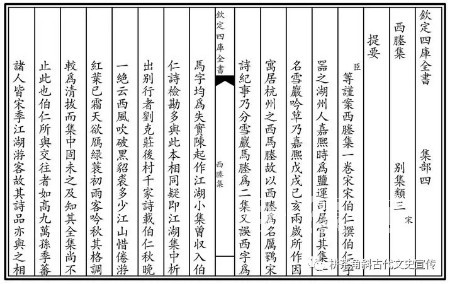 欽定四庫全書 集部四
西塍集 別集類三 宋
提要
臣等謹案西塍集一卷宋宋伯仁撰伯仁字
器之湖州人嘉熙時為鹽運司屬官其集一
名雪巖吟草乃嘉熙戊戌己亥兩歲所作因
寓居杭州之西馬塍故以西塍為名厲鶚宋
詩紀事乃分雪巖馬塍為二集又誤西字為
欽定四庫全書 西塍集
馬字均為失實陳起作江湖小集曾収入伯
仁詩檢勘多與此本相同疑即江湖集中析
出别行者劉克莊後村千家詩載伯仁秋晚
一絶云西風吹破黑貂裘多少江山惜倦游
紅葉已霜天欲鴈綠蓑初雨客吟秋其格調
較為清拔而集中固未之及知其全集尚不
止此也伯仁所與交往者如高九萬孫季蕃
諸人皆宋季江湖游客故其詩品亦與之相
古代文史宣传